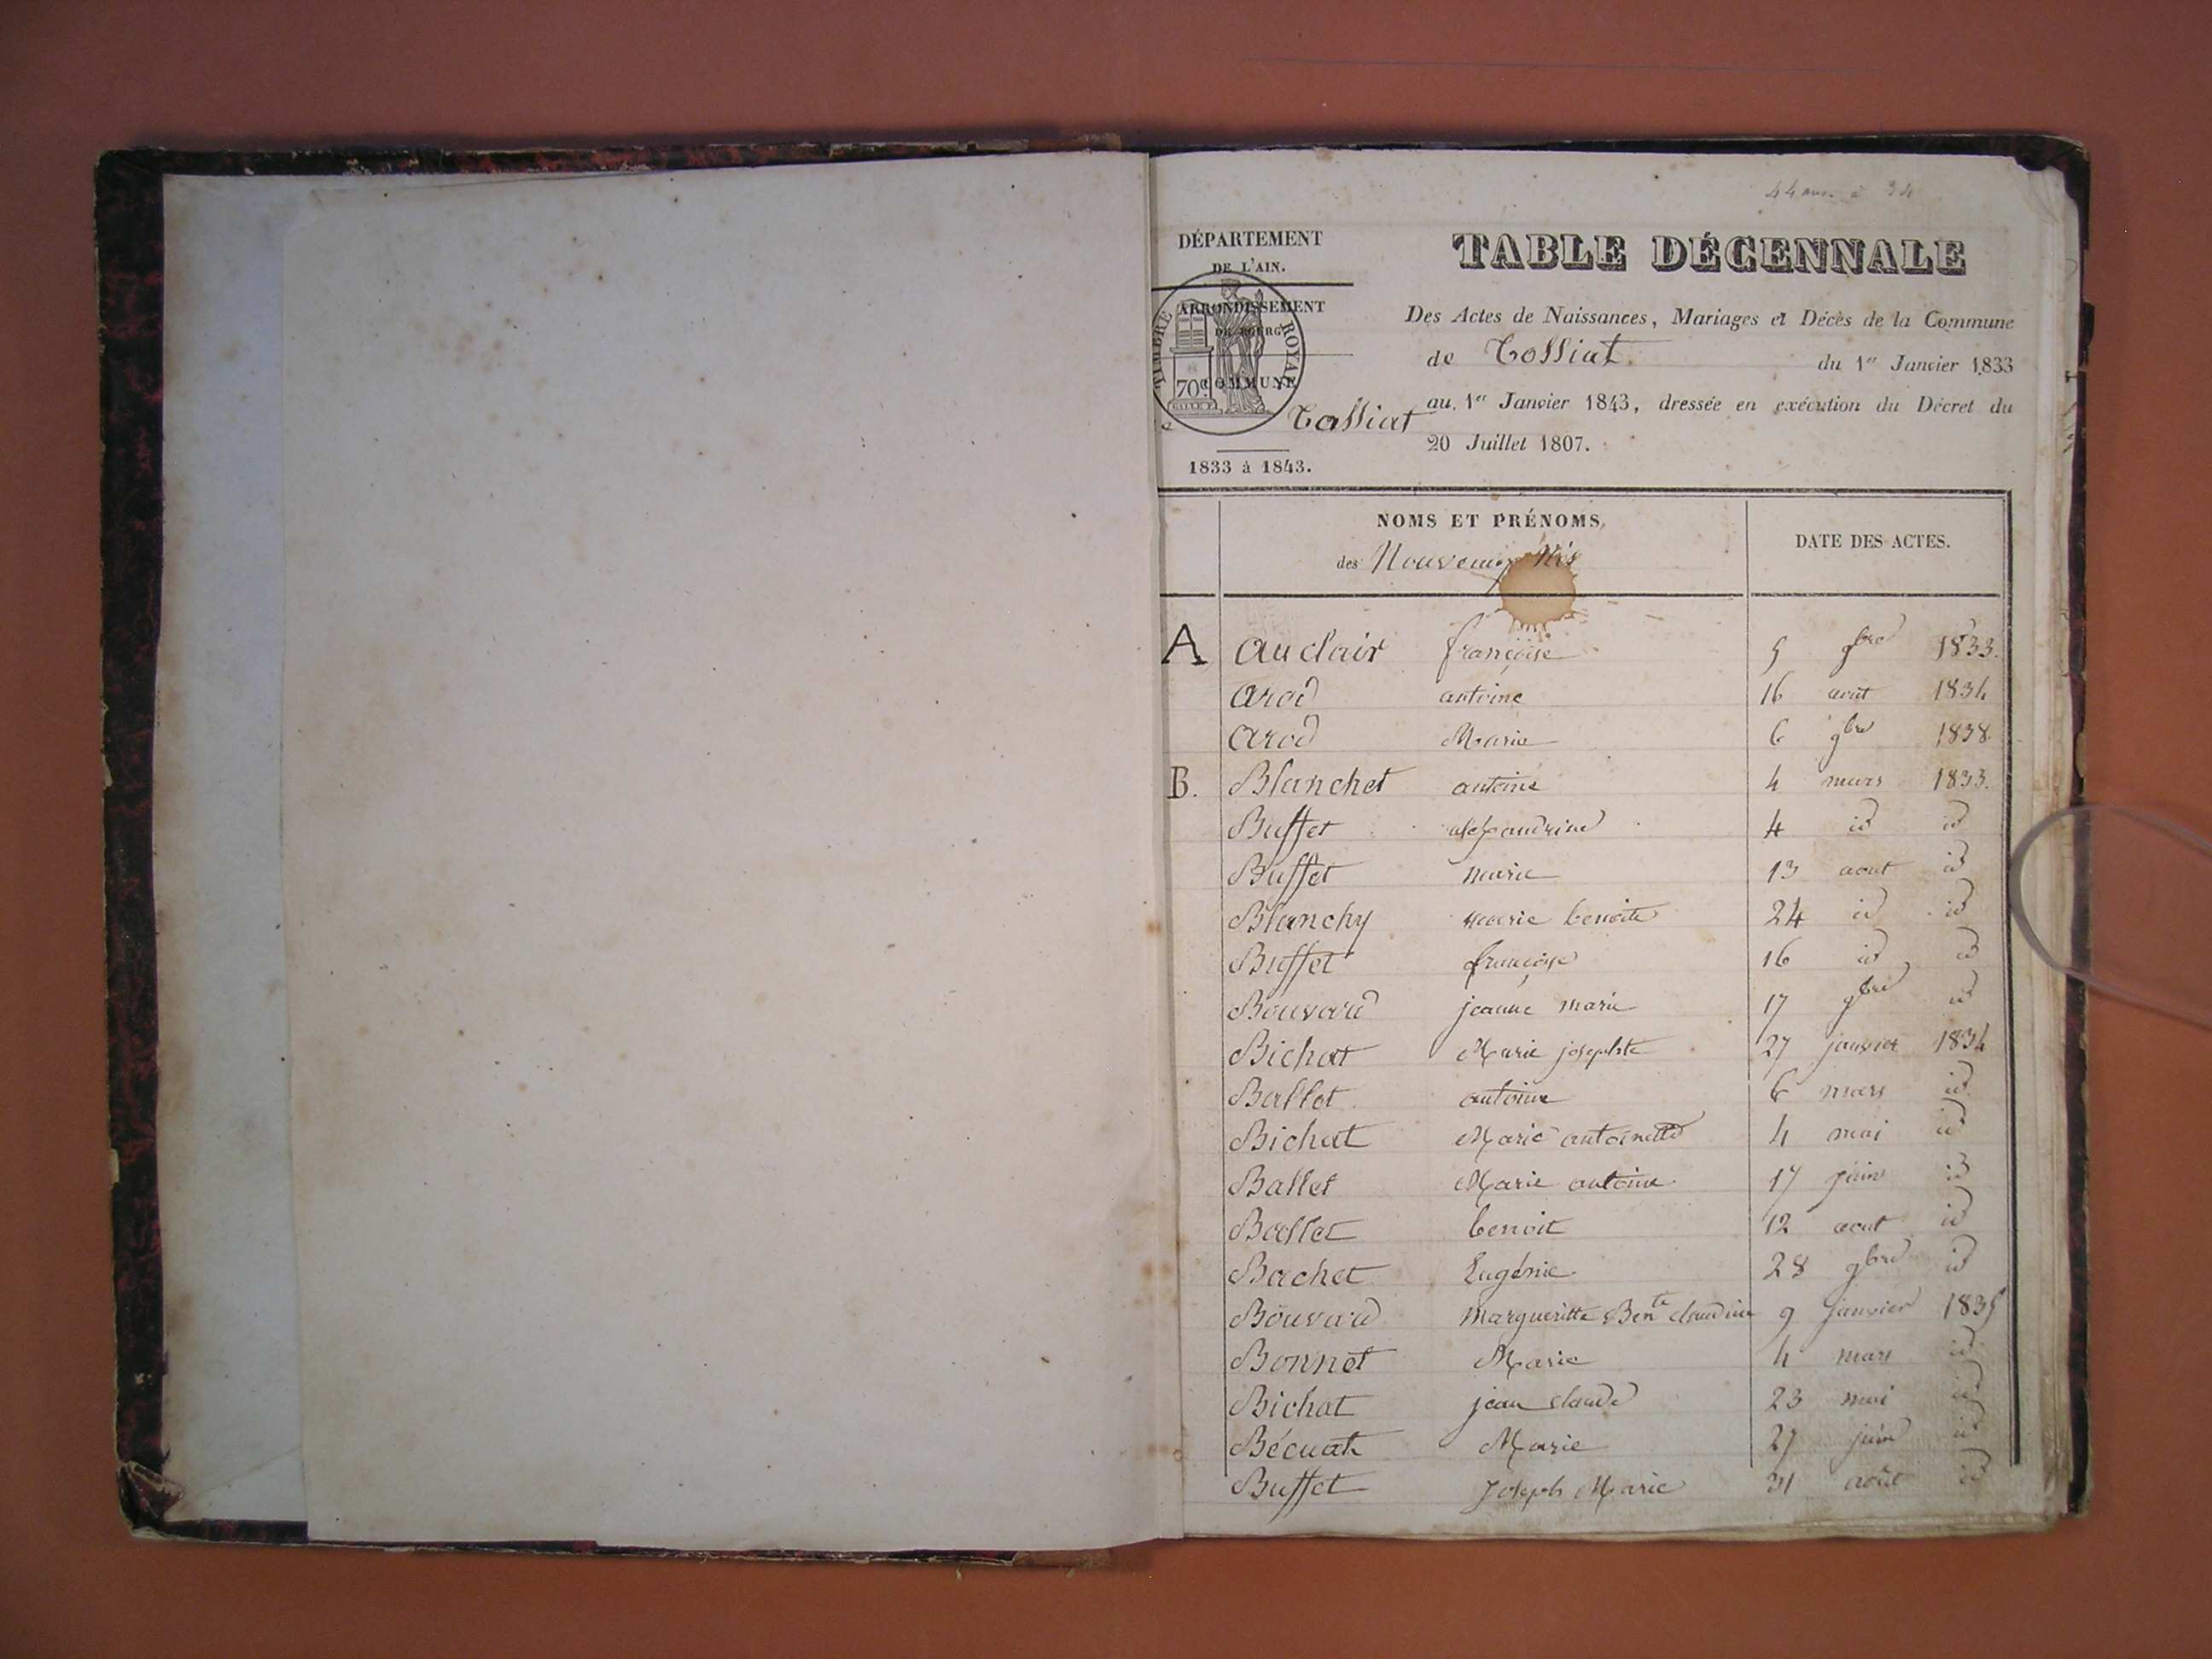 DÉPARTEMENT
DE L'AIN.
ARRONDISSEMENT
DE BOURG
COMMUNE
Tossiat
1833 à 1843.
TIMBRE ROYAL
70c
TABLE DÉCENNALE
Des Actes de Naissances, Mariages et Décès de la Commune
de Tossiat du 1er Janvier 1833
au 1er Janvier 1843, dressée en exécution du Décret du
20 Juillet 1807.
NOMS ET PRÉNOMS DATE DES ACTES.
des Nouveaux Nés
A Auclair françoise 5 9bre 1833.
Arod antoine 16 août 1834
Arod Marie 6 9bre 1838
B. Blanchet antoine 4 mars 1833.
Buffet alexandrine 4 id id
Buffet marie 13 aout id
Blanchy marie benoite 24 id id
Buffet françoise 16 id id
Bouvard jeanne marie 17 9bre id
Bichat Marie josephte 27 janvier 1834
Ballet antoine 6 mars id
Bichat Marie antoinette 4 mai id
Ballet Marie antoine 17 juin id
Ballet benoit 12 aout id
Bachet Eugénie 28 9bre id
Bouvard Margueritte Bente claudine 9 Janvier 1835
Bonnet Marie 4 mars id
Bichat jean claude 23 mai id
Bécuat Marie 27 juin id
Buffet Joseph Marie 31 août id